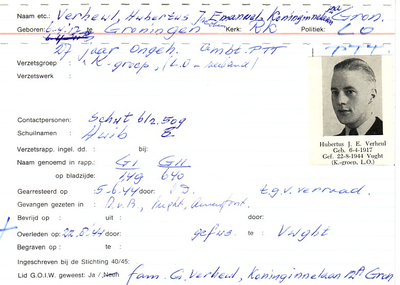 Naam etc.: Verheul, Hubertus J. Emanuel, Koninginnelaan Gron.
Geboren: Groningen Kerk: RK Politiek:
27 jaar Ongeh. Ambt. PTT
Verzetsgroep : K-groep, (L.O.
Verzetswerk :
Contactpersonen: Schut blz. 509
Schuilnamen : Huib
Verzetsrapp. ingel. dd. : bij:
Naam genoemd in rapp.: GI GII
op bladzijde: 149 640
Gearresteerd op : 5-6-44 door: t.g.v. verraad.
Gevangen gezeten in : H.v.B., Vught, Amersfoort.
Bevrijd op : uit : door:
Overleden op : 22-8-44 door: gefus. te : Vught
Begraven op : te :
Ingeschreven bij de Stichting 40/45:
Lid G.O.I.W. geweest: Ja / Neen fam. G. Verheul, Koninginnelaan Gron
Hubertus J. E. Verheul
Geb. 6-4-1917
Gef. 22-8-1944 Vught
(K-groep, L.O.)